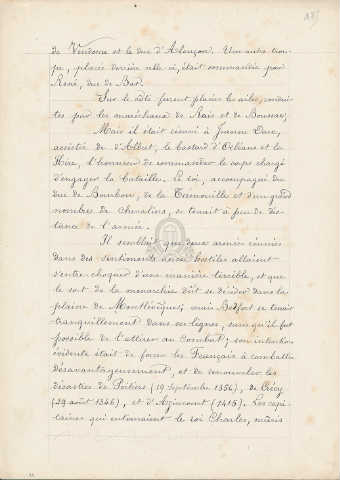 de Vendome et le duc d'Alençon. Une autre trou-
pe, placée derrière elle ci, était commandée par
René, duc de Bar.
Sur le côté furent placées les ailes, condui-
tes par les maréchaux de Rais et de Boussac.
Mais il était réservé à Jeanne Darc,
assistée de d'Albret, le bastard d'Orléans et la
Hire, l'honneur de commander le corps chargé
d'engager la bataille. Le roi, accompagné du
duc de Bourbon, de la Trémouille et d'un grand
nombre de chevaliers, se tenait à peu de dis-
tance de l'armée.
Il semblait que deux armées réunies
dans des sentiments aussi hostiles allaient
s'entre choquer d'une manière terrible, et que
le sort de la monarchie dût se décider dans la
plaine de Montlévêque; mais Bedford se tenait
tranquillement dans ses lignes, sans qu'il fut
possible de l'attirer au combat; son intention
évidente était de forcer les Français à combattre
désavantageusement, et de renouveler les
désastres de Poitiers (19 Septembre 1356), de Crécy
(29 août 1346), et d'Azincourt (1415). Les capi-
taines qui entouraient le roi Charles, mûris